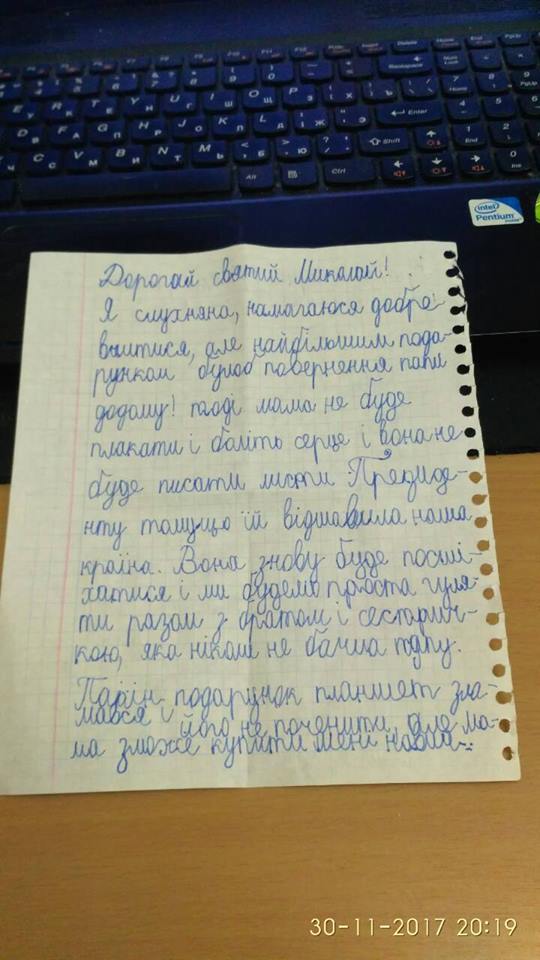 Дорогай святий Миколай!
Я слухняна, намагаюся добре
вчитися, але найбільшим пода-
рунком булоб повернення папи
додому! тоді мама не буде
плакати і боліть серце і вона не
буде писати листи Президе-
нту томущо їй відшавила наша
країна. Вона знову буде посмі-
хатися і ми будемо проста гуля-
ти разом з братом і сестрич-
кою, яка ніколи не бачила папу.
Папін подарунок планшет зла-
мався і його не починити, але ма-
ма зможе купити мені новий...
intel
Pentium
Enter
Shift
Backspace
Ctrl
Alt
End
Home
30-11-2017 20:19